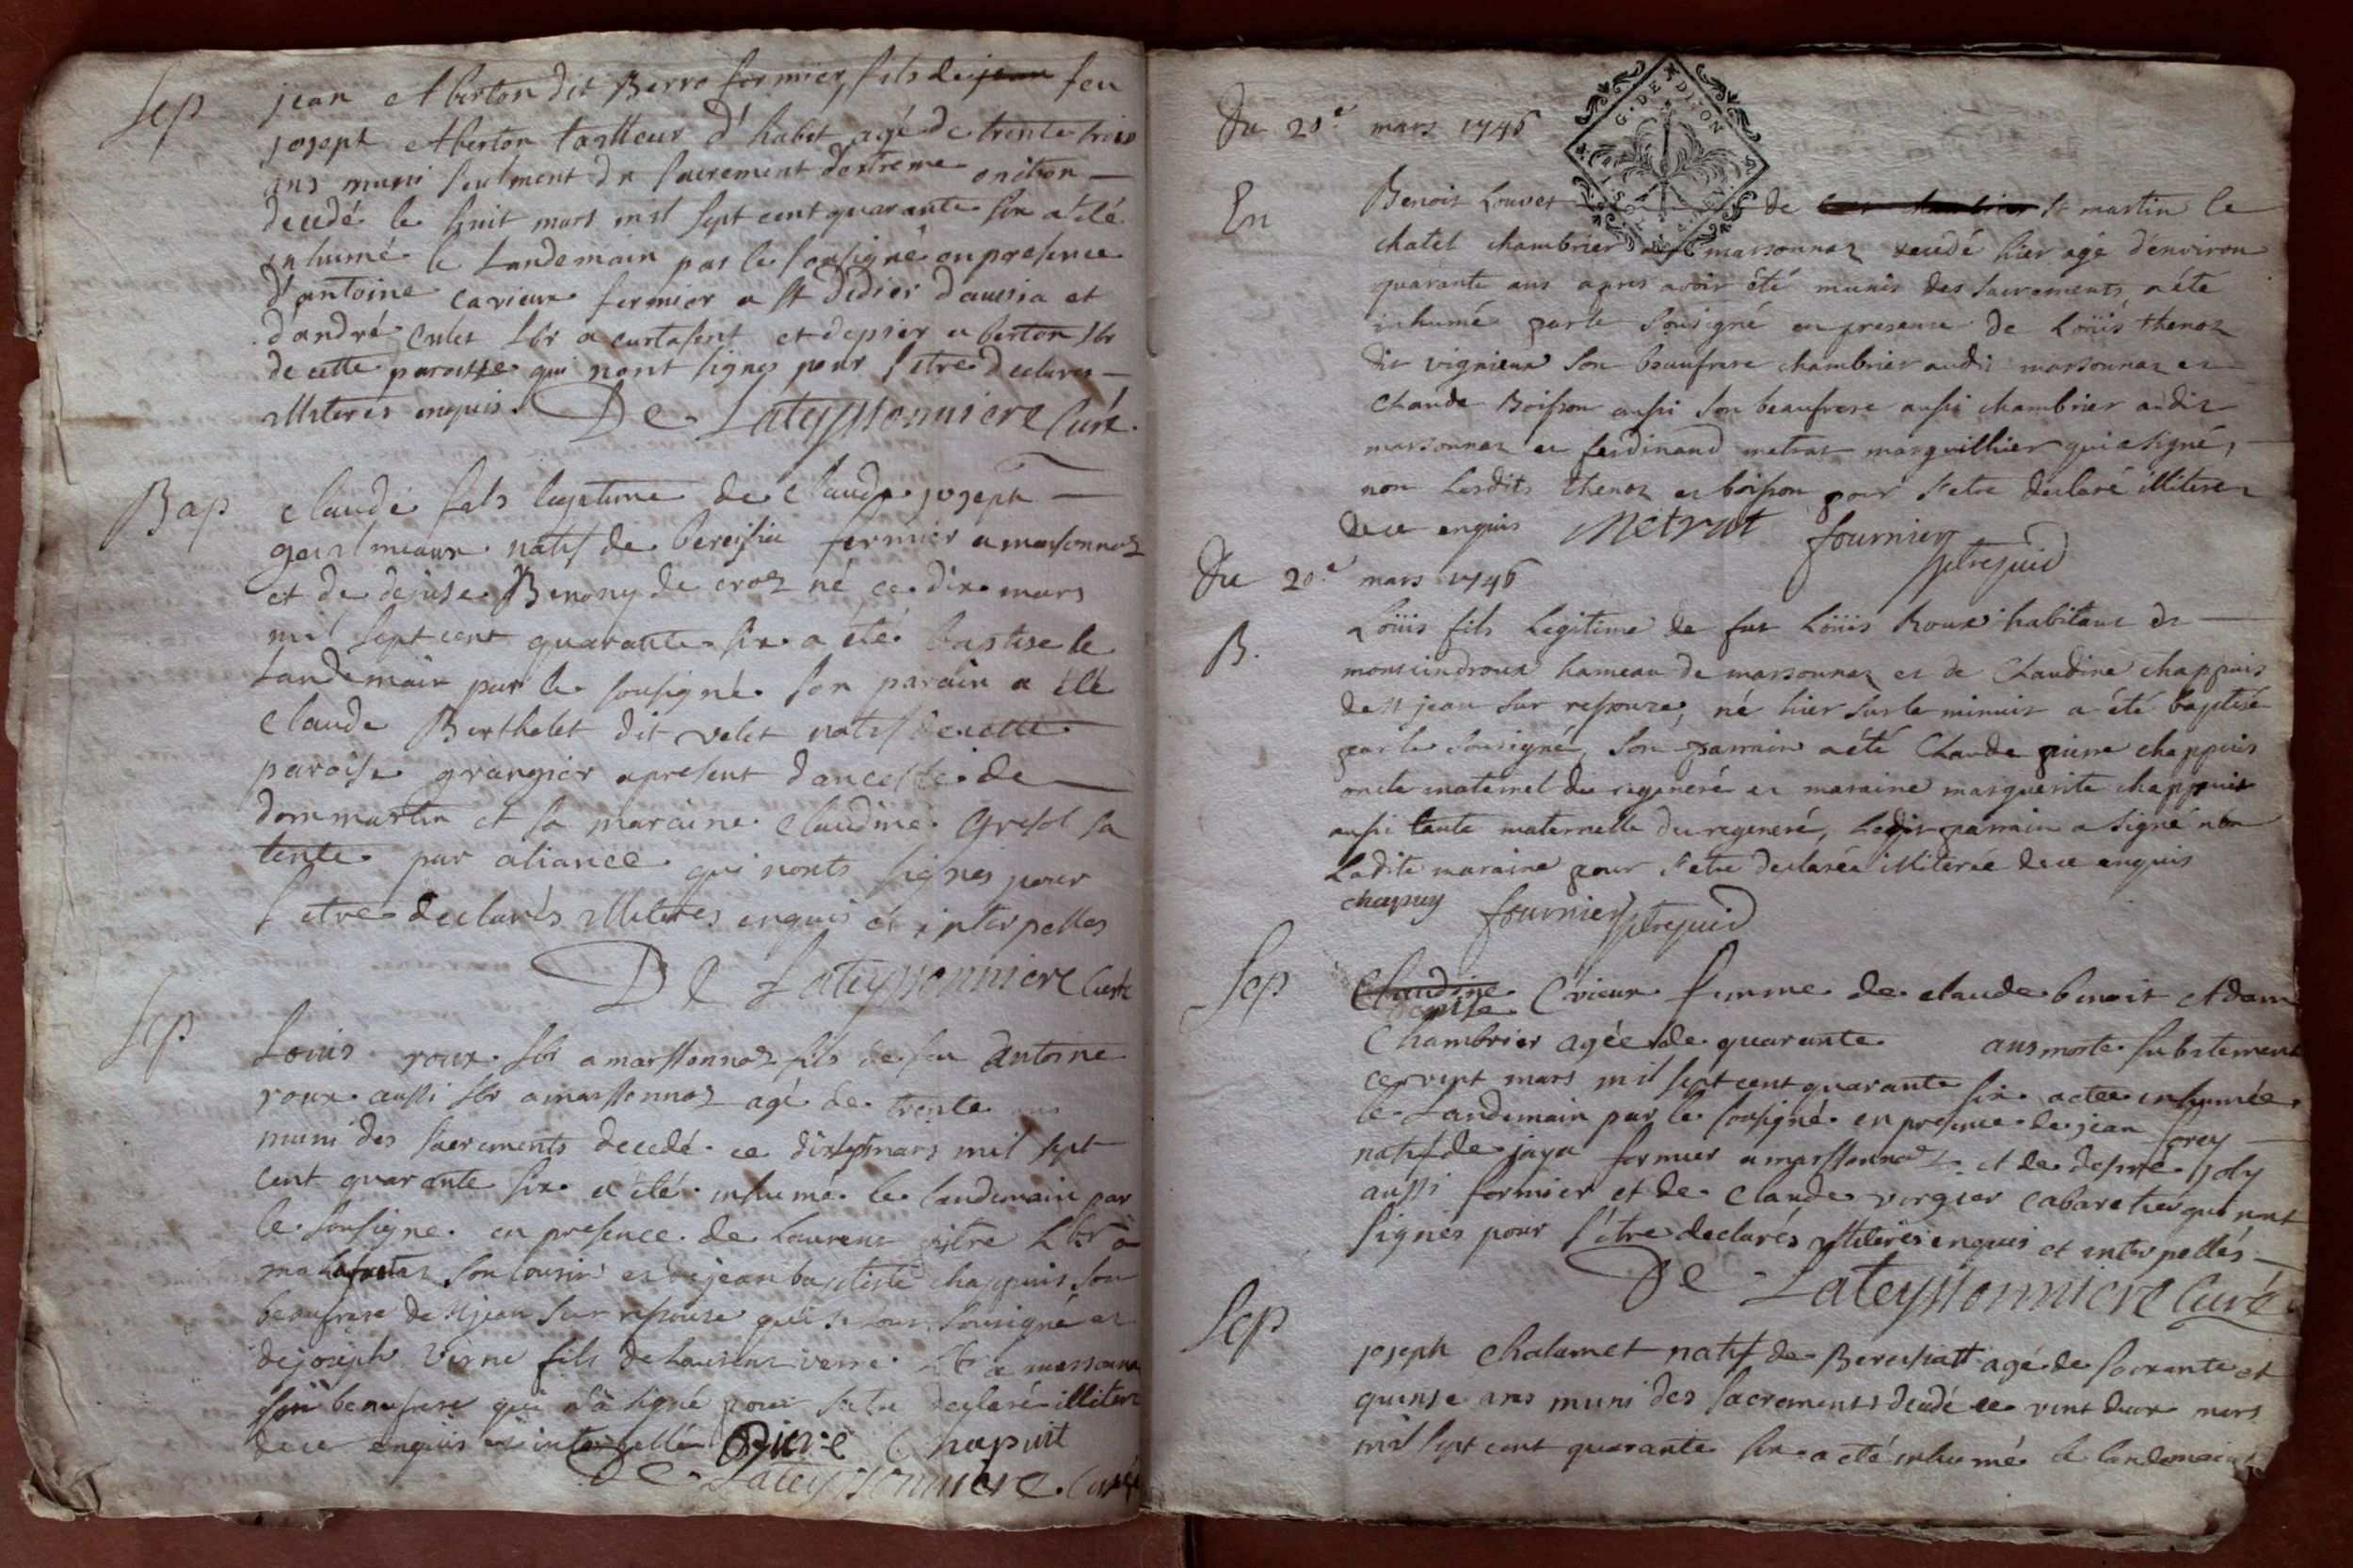 Sep
jean Aberton dit Berro fermier, fils de jean feu
joseph Aberton tailleur d'habit agé de trente trois
ans muni seulment du sacrement d'extreme onction
decedé le huit mars mil sept cent quarante six a été
inhumé le landemain par le sousigné en presence
d'antoine cavieux fermier a St Didier d'aussia et
d'andré Culet lbr a curtasent et depsier aberton lbr
de cette paroisse qui nont signes pour s'etre declares
illiteres enquis. De Lateyssonniere Curé.
Bap
claude fils legetime de claude joseph
natif de bereisia fermier a marsonnas
et de denise Benony de croz né ce dix mars
mil sept cent quarante six a été baptise le
landemain par le sousigné. son parain a été
claude Berthelet dit velet natif de cette
paroisse grangier apresent de
dommartin et sa maraine claudine Gresol sa
tente par aliance qui nonts signes pour
s'etre declarés illiteres enquis et interpelles
De Lateyssonniere Curé
Sep
Louis roux lbr a marssonnas fils de feu antoine
roux aussi lbr a marssonnas agé de trente ans
muni des sacrements decedé ce dixsept mars mil sept
cent quarante six a été inhumé le landemain par
le sousigne en presence de Laurent lbr a
son cousin et de jean baptiste chappuis son
beaufrere de St jean sur resouze qui sousigné et
de joseph verne fils de Laurent verne lbr a marsonna
son beaufrere qui n'a signé pour s'etre declaré illitere
de ce enquis et interpellé Chapuit
De Lateyssonniere Curé
Du 20.e mars 1746
En
Benoit Louvet de St martin le
chatel chambrier a marsonnaz decédé hier agé d'environ
quarante ans apres avoir été munis des sacrements, a été
inhumé par le sousigné en presence de Loüis thenoz
dit vignieux son beaufrere chambrier audit marsonnaz et
Claude Boisson aussi son beaufrere aussi chambrier audit
marsonnaz et ferdinand metrat marguillier qui a signé,
non lesdits thenoz et boisson pour s'etre declaré illiteré
de ce enquis Metrat fournier
Du 20.e mars 1746
B.
Loüis fils legitime de fut Loüis Roux habitant de
montcindroux hameau de marsonnaz et de Claudine chappuis
de St jean sur resouze, né hier sur le minuit a été baptisé
par le sousigné, son parrain a été Claude pierre chappuis
oncle maternel du regeneré et maraine marguerite chappuis
aussi tante maternelle du regeneré, ledit parrain a signé non
ladite maraine pour s'etre declarée illiterée de ce enquis
chapuy fournier
Sep
Claudine
Denise Cvieux femme de claude benoit Adam
Chambrier agée de quarante ans morte subitement
ce vint mars mil sept cent quarante six a etée inhumée
le landemain par le sousigné en presence de jean forey
natif de jaya fermier a marssonnas et de joly
aussi fermier et de claude vergier cabaretier qui nont
signés pour s'être declarés illiteres enquis et interpellés
De Lateyssonniere Curé
Sep
joseph chalumet natif de Beresiatt agé de soixante et
quinse ans muni des sacrements decedé ce vint deux mars
mil sept cent quarante six a été inhumé le landemain